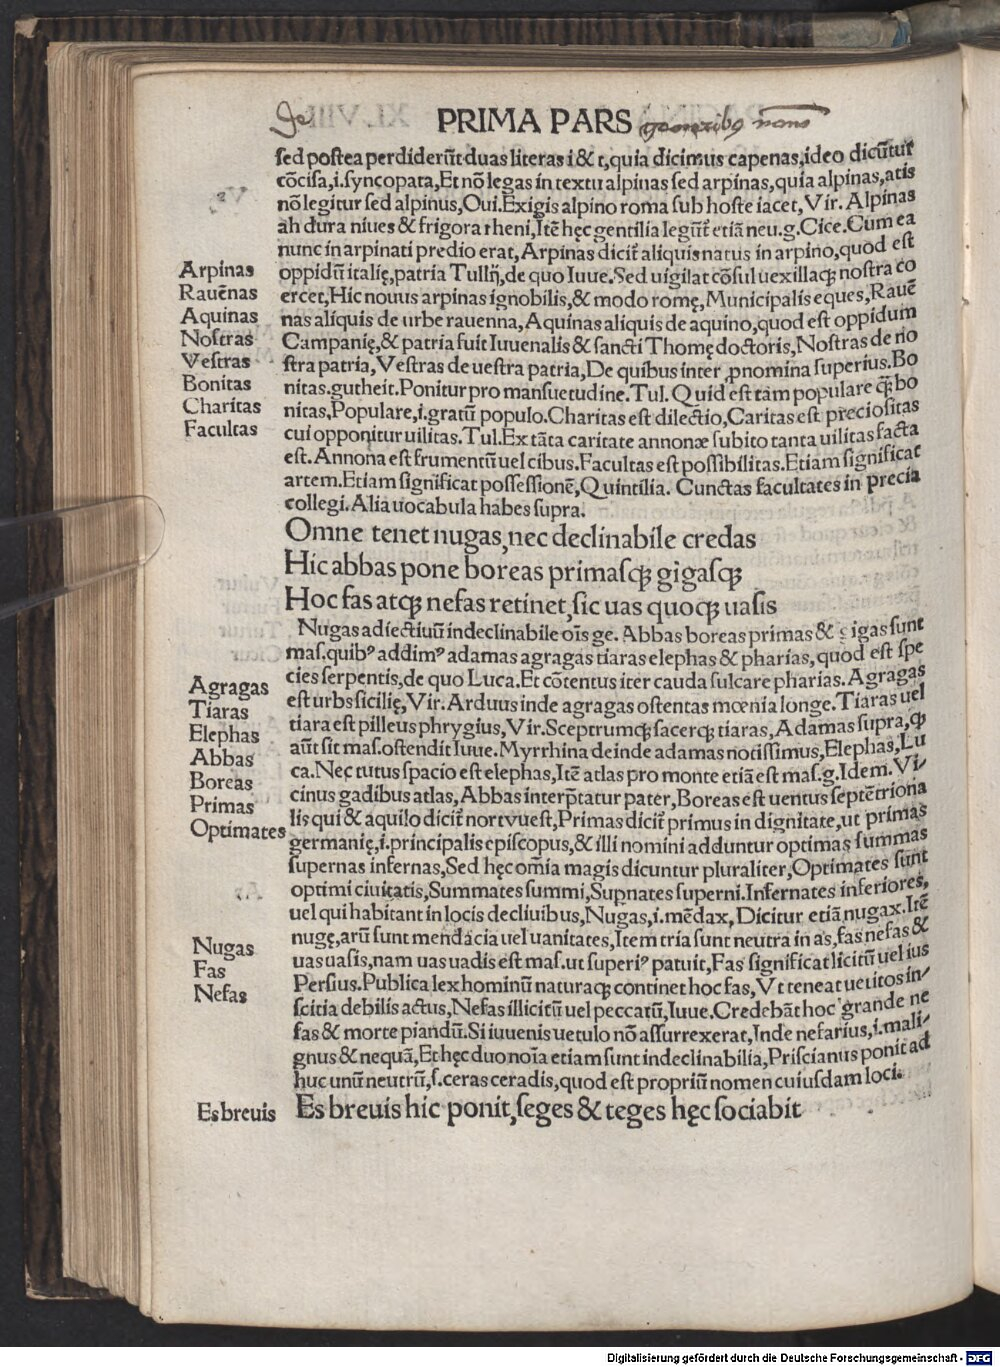 De PRIMA PARS generibꝰ nom̄
sed postea perdiderūt duas literas i & t, quia dicimus capenas, ideo dicūtur
cōcisa, i. syncopata, Et nō legas in textu alpinas sed arpinas, quia alpinas, atis
nō legitur sed alpinus, Oui. Exigis alpino roma sub hoste iacet, Vir. Alpinas
ah dura niues & frigora rheni, Itē hęc gentilia legūt̄ etiā neu. g. Cice. Cum ea
nunc in arpinati predio erat, Arpinas dicit̄ aliquis natus in arpino, quod est
Arpinas oppidū italię, patria Tullij, de quo Iuue. Sed uigilat cōsul uexillaqꝫ nostra co
Rauēnas ercet, Hic nouus arpinas ignobilis, & modo romę, Municipalis eques, Rauē
Aquinas nas aliquis de urbe rauenna, Aquinas aliquis de aquino, quod est oppidum
Nostras Campanię, & patria fuit Iuuenalis & sancti Thomę doctoris, Nostras de no
Vestras stra patria, Vestras de uestra patria, De quibus inter ꝓnomina superius. Bo
Bonitas nitas. gutheit. Ponitur pro mansuetudine. Tul. Quid est tam populare qꝫ̄ bo
Charitas nitas, Populare, i. gratū populo. Charitas est dilectio, Caritas est preciositas
Facultas cui opponitur uilitas. Tul. Ex tāta caritate annonæ subito tanta uilitas facta
est. Annona est frumentū uel cibus. Facultas est possibilitas. Etiam significat
artem. Etiam significat possessionē, Quintilia. Cunctas facultates in precia
collegi. Alia uocabula habes supra.
Omne tenet nugas, nec declinabile credas
Hic abbas pone boreas primasqꝫ gigasqꝫ
Hoc fas atqꝫ nefas retinet, sic uas quoqꝫ uasis
Nugas adiectiuū indeclinabile oīs ge. Abbas boreas primas & gigas sunt
mas. quibꝰ addimꝰ adamas agragas tiaras elephas & pharias, quod est spe
cies serpentis, de quo Luca. Et cōtentus iter cauda sulcare pharias. Agragas
Agragas est urbs sicilię, Vir. Arduus inde agragas ostentas mœnia longe. Tiaras uel
Tiaras tiara est pilleus phrygius, Vir. Sceptrumqꝫ sacerqꝫ tiaras, Adamas supra, qꝫ
Elephas aūt sit mas. ostendit Iuue. Myrrhina deinde adamas notissimus, Elephas, Lu
Abbas ca. Nec tutus spacio est elephas, Itē atlas pro monte etiā est mas. g. Idem. Vi-
Boreas cinus gadibus atlas, Abbas interp̄tatur pater, Boreas est uentus septētriona
Primas lis qui & aquilo dicit̄ nortvuest, Primas dicit̄ primus in dignitate, ut primas
Optimates germanię, i. principalis episcopus, & illi nomini adduntur optimas summas
supernas infernas, Sed hęc om̄ia magis dicuntur pluraliter, Optimates sunt
optimi ciuitatis, Summates summi, Supnates superni. Infernates inferiores,
uel qui habitant in locis decliuibus, Nugas, i. mēdax, Dicitur etiā nugax. Itē
Nugas nugę, arū sunt mendacia uel uanitates, Item tria sunt neutra in as, fas nefas &
Fas uas uasis, nam uas uadis est mas. ut superiꝰ patuit, Fas significat licitū uel ius
Nefas Persius. Publica lex hominū naturaqꝫ continet hoc fas, Vt teneat uetitos in-
scitia debilis actus, Nefas illicitū uel peccatū, Iuue. Credebāt hoc grande ne
fas & morte piandū. Si iuuenis uetulo nō assurrexerat, Inde nefarius, i. mali-
gnus & nequā, Et hęc duo noīa etiam sunt indeclinabilia, Priscianus ponit ad
huc unū neutrū, s. ceras ceradis, quod est propriū nomen cuiusdam loci.
Es breuis Es breuis hic ponit, seges & teges hęc sociabit
Digitalisierung gefördert durch die Deutsche Forschungsgemeinschaft - DFG